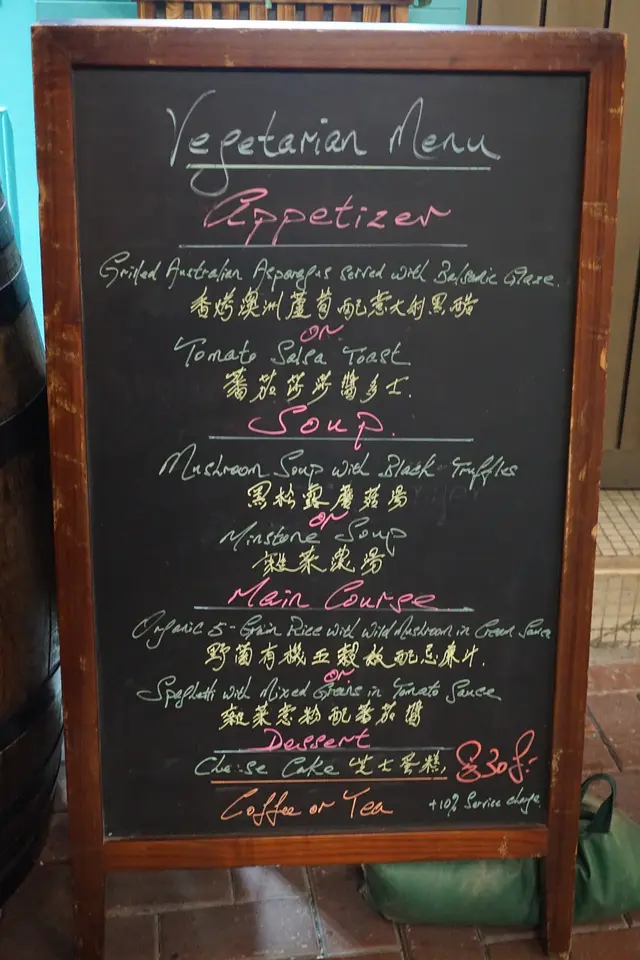 Vegetarian Menu
Appetizer
Grilled Australian Asparagus served with Balsamic Glaze.
香烤澳洲蘆筍配意大利黑醋
or
Tomato Salsa Toast
蕃茄莎莎醬多士.
Soup.
Mushroom Soup with Black Truffles
黑松露蘑菇湯
or
Minstone Soup
雜菜濃湯
Main Course
Organic 5-Grain Rice with Wild Mushroom in Cream Sauce
野菌有機五穀飯配忌廉汁.
or
Spaghetti with Mixed Greens in Tomato Sauce
雜菜意粉配蕃茄醬
Dessert
Cheese Cake 芝士蛋糕.
Coffee or Tea
+10% Service charge